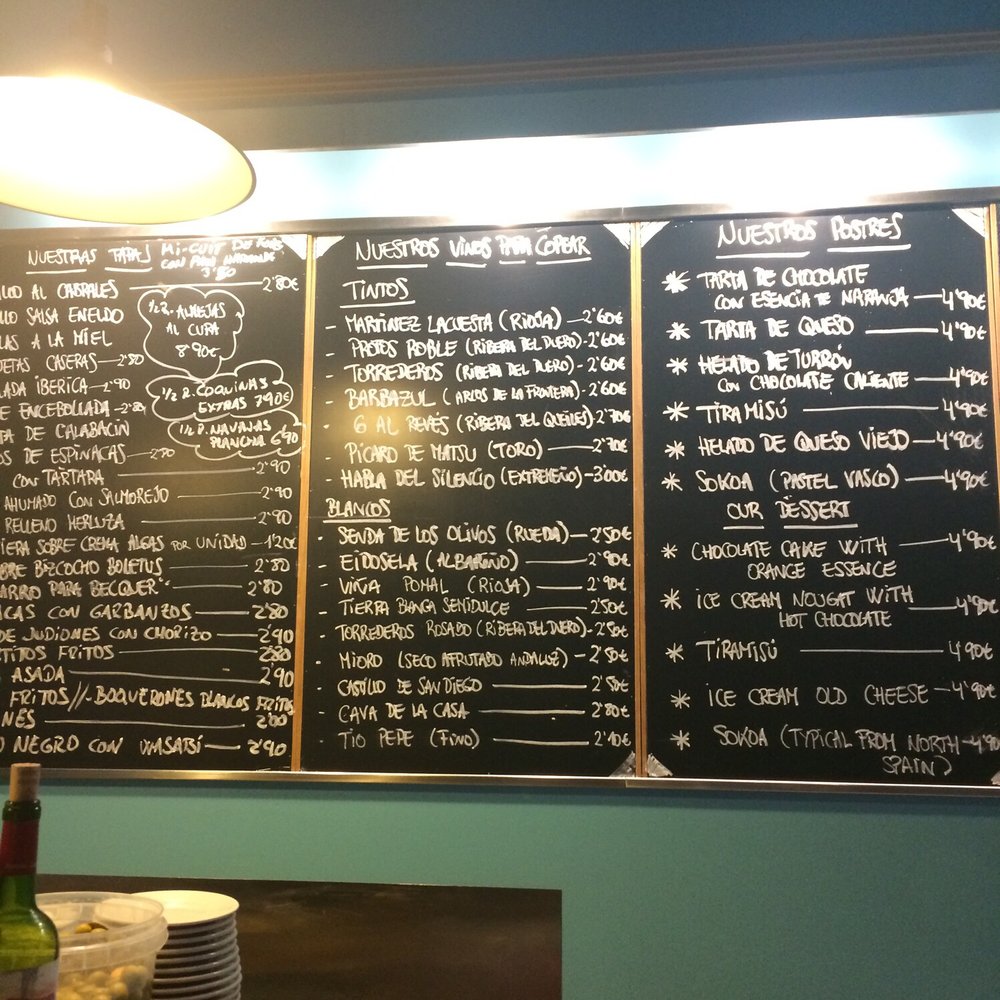 NUESTRAS TAPAS
MI-CUIT DE
CON PAN
3'80
AL CABRALES 2'80€
SALSA ENELDO
A LA MIEL
CASERAS 2'80
IBERICA 2'90
ENCEBOLLADA 2'80
DE CALABACIN
DE ESPINACAS 2'80
CON TARTARA 2'90
AHUMADO CON SALMOREJO 2'90
RELLENO MERLUZA 2'90
SOBRE CREMA ALGAS POR UNIDAD 1'20€
BIZCOCHO BOLETUS 2'80
PARA BECQUER 2'80
CON GARBANZOS 2'80
DE JUDIONES CON CHORIZO 2'90
FRITOS 2'80
ASADA 2'90
FRITOS // BOQUERONES BLANCOS FRITOS
2'00
NEGRO CON WASABSI 2'90
1/2 R. ALMEJAS
AL CURA
8'90€
1/2 R. COQUINAS
EXTRAS 7'90€
1/2 R. NAVAJAS
PLANCHA 6'90
NUESTROS VINOS PARA COPEAR
TINTOS
- MARTINEZ LACUESTA (RIOJA) - 2'60€
- PROTOS ROBLE (RIBERA DEL DUERO) - 2'60€
- TORREDEROS (RIBERA DEL DUERO) - 2'60€
- BARBAZUL (ARCOS DE LA FRONTERA) - 2'60€
- 6 AL REVÉS (RIBERA DEL QUEILES) - 2'70€
- PICARO DE MATSU (TORO) - 2'70€
- HABLA DEL SILENCIO (EXTREMEÑO) - 3'00€
BLANCOS
- SENDA DE LOS OLIVOS (RUEDA) - 2'50€
- EIDOSELA (ALBARIÑO) - 2'90€
- VIÑA POMAL (RIOJA) - 2'90€
- TIERRA BLANCA SEMIDULCE 2'50€
- TORREDEROS ROSADO (RIBERA DEL DUERO) - 2'50€
- MIORO (SECO AFRUTADO ANDALUZ) - 2'50€
- CASTILLO DE SAN DIEGO 2'50€
- CAVA DE LA CASA 2'80€
- TIO PEPE (FINO) 2'10€
NUESTROS POSTRES
* TARTA DE CHOCOLATE
CON ESENCIA DE NARANJA - 4'90€
* TARTA DE QUESO 4'90€
* HELADO DE TURRÓN
CON CHOCOLATE CALIENTE - 4'90€
* TIRAMISÚ 4'90€
* HELADO DE QUESO VIEJO - 4'90€
* SOKOA (PASTEL VASCO) - 4'90€
OUR DESSERT
* CHOCOLATE CAKE WITH 4'90€
ORANGE ESSENCE
* ICE CREAM NOUGAT WITH 4'90€
HOT CHOCOLATE
* TIRAMISÚ 4'90€
* ICE CREAM OLD CHEESE - 4'90€
* SOKOA (TYPICAL FROM NORTH - 4'90€
SPAIN)